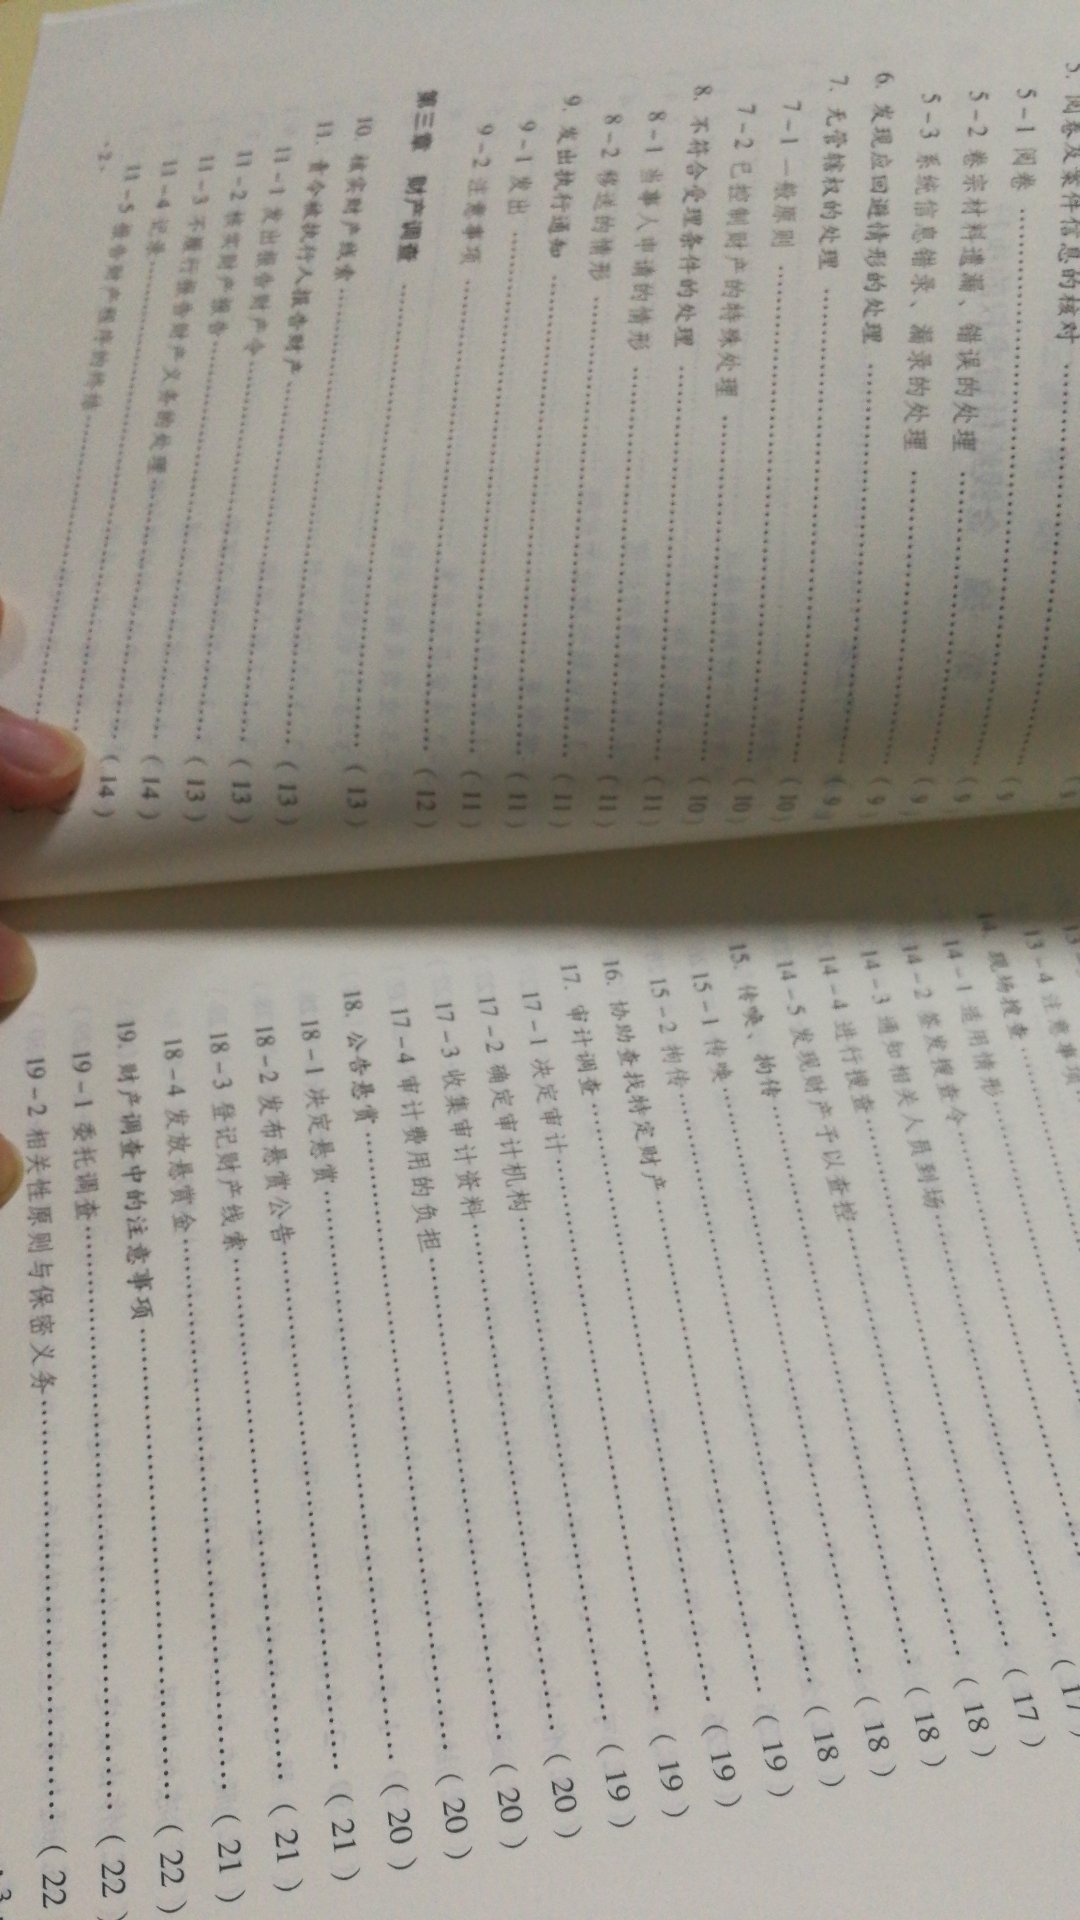 5. 阅卷及案件信息的核对
5-1 阅卷 (9
5-2 卷宗材料遗漏、错误的处理 (9
5-3 系统信息错录、漏录的处理 (9
6. 发现应回避情形的处理 (9
7. 无管辖权的处理 (9
7-1 一般原则 (10)
7-2 已控制财产的特殊处理 (10)
8. 不符合受理条件的处理 (10)
8-1 当事人申请的情形 (11)
8-2 移送的情形 (11)
9. 发出执行通知 (11)
9-1 发出 (11)
9-2 注意事项 (11)
第三章 财产调查 (12)
10. 核实财产线索 (13)
11. 责令被执行人报告财产 (13)
11-1 发出报告财产令 (13)
11-2 核实财产报告 (13)
11-3 不履行报告财产义务的处理 (14)
11-4 记录 (14)
11-5 报告财产程序的终结
·2·
13-4 注意事项
14. 现场搜查 (17)
14-1 适用情形 (17)
14-2 签发搜查令 (18)
14-3 通知相关人员到场 (18)
14-4 进行搜查 (18)
14-5 发现财产予以查控 (18)
15. 传唤、拘传 (19)
15-1 传唤 (19)
15-2 拘传 (19)
16. 协助查找特定财产 (19)
17. 审计调查 (20)
17-1 决定审计 (20)
17-2 确定审计机构 (20)
17-3 收集审计资料 (20)
17-4 审计费用的负担
18. 公告悬赏 (21)
18-1 决定悬赏 (21)
18-2 发布悬赏公告 (21)
18-3 登记财产线索 (22)
18-4 发放悬赏金
19. 财产调查中的注意事项 (22)
19-1 委托调查 (22
19-2 相关性原则与保密义务